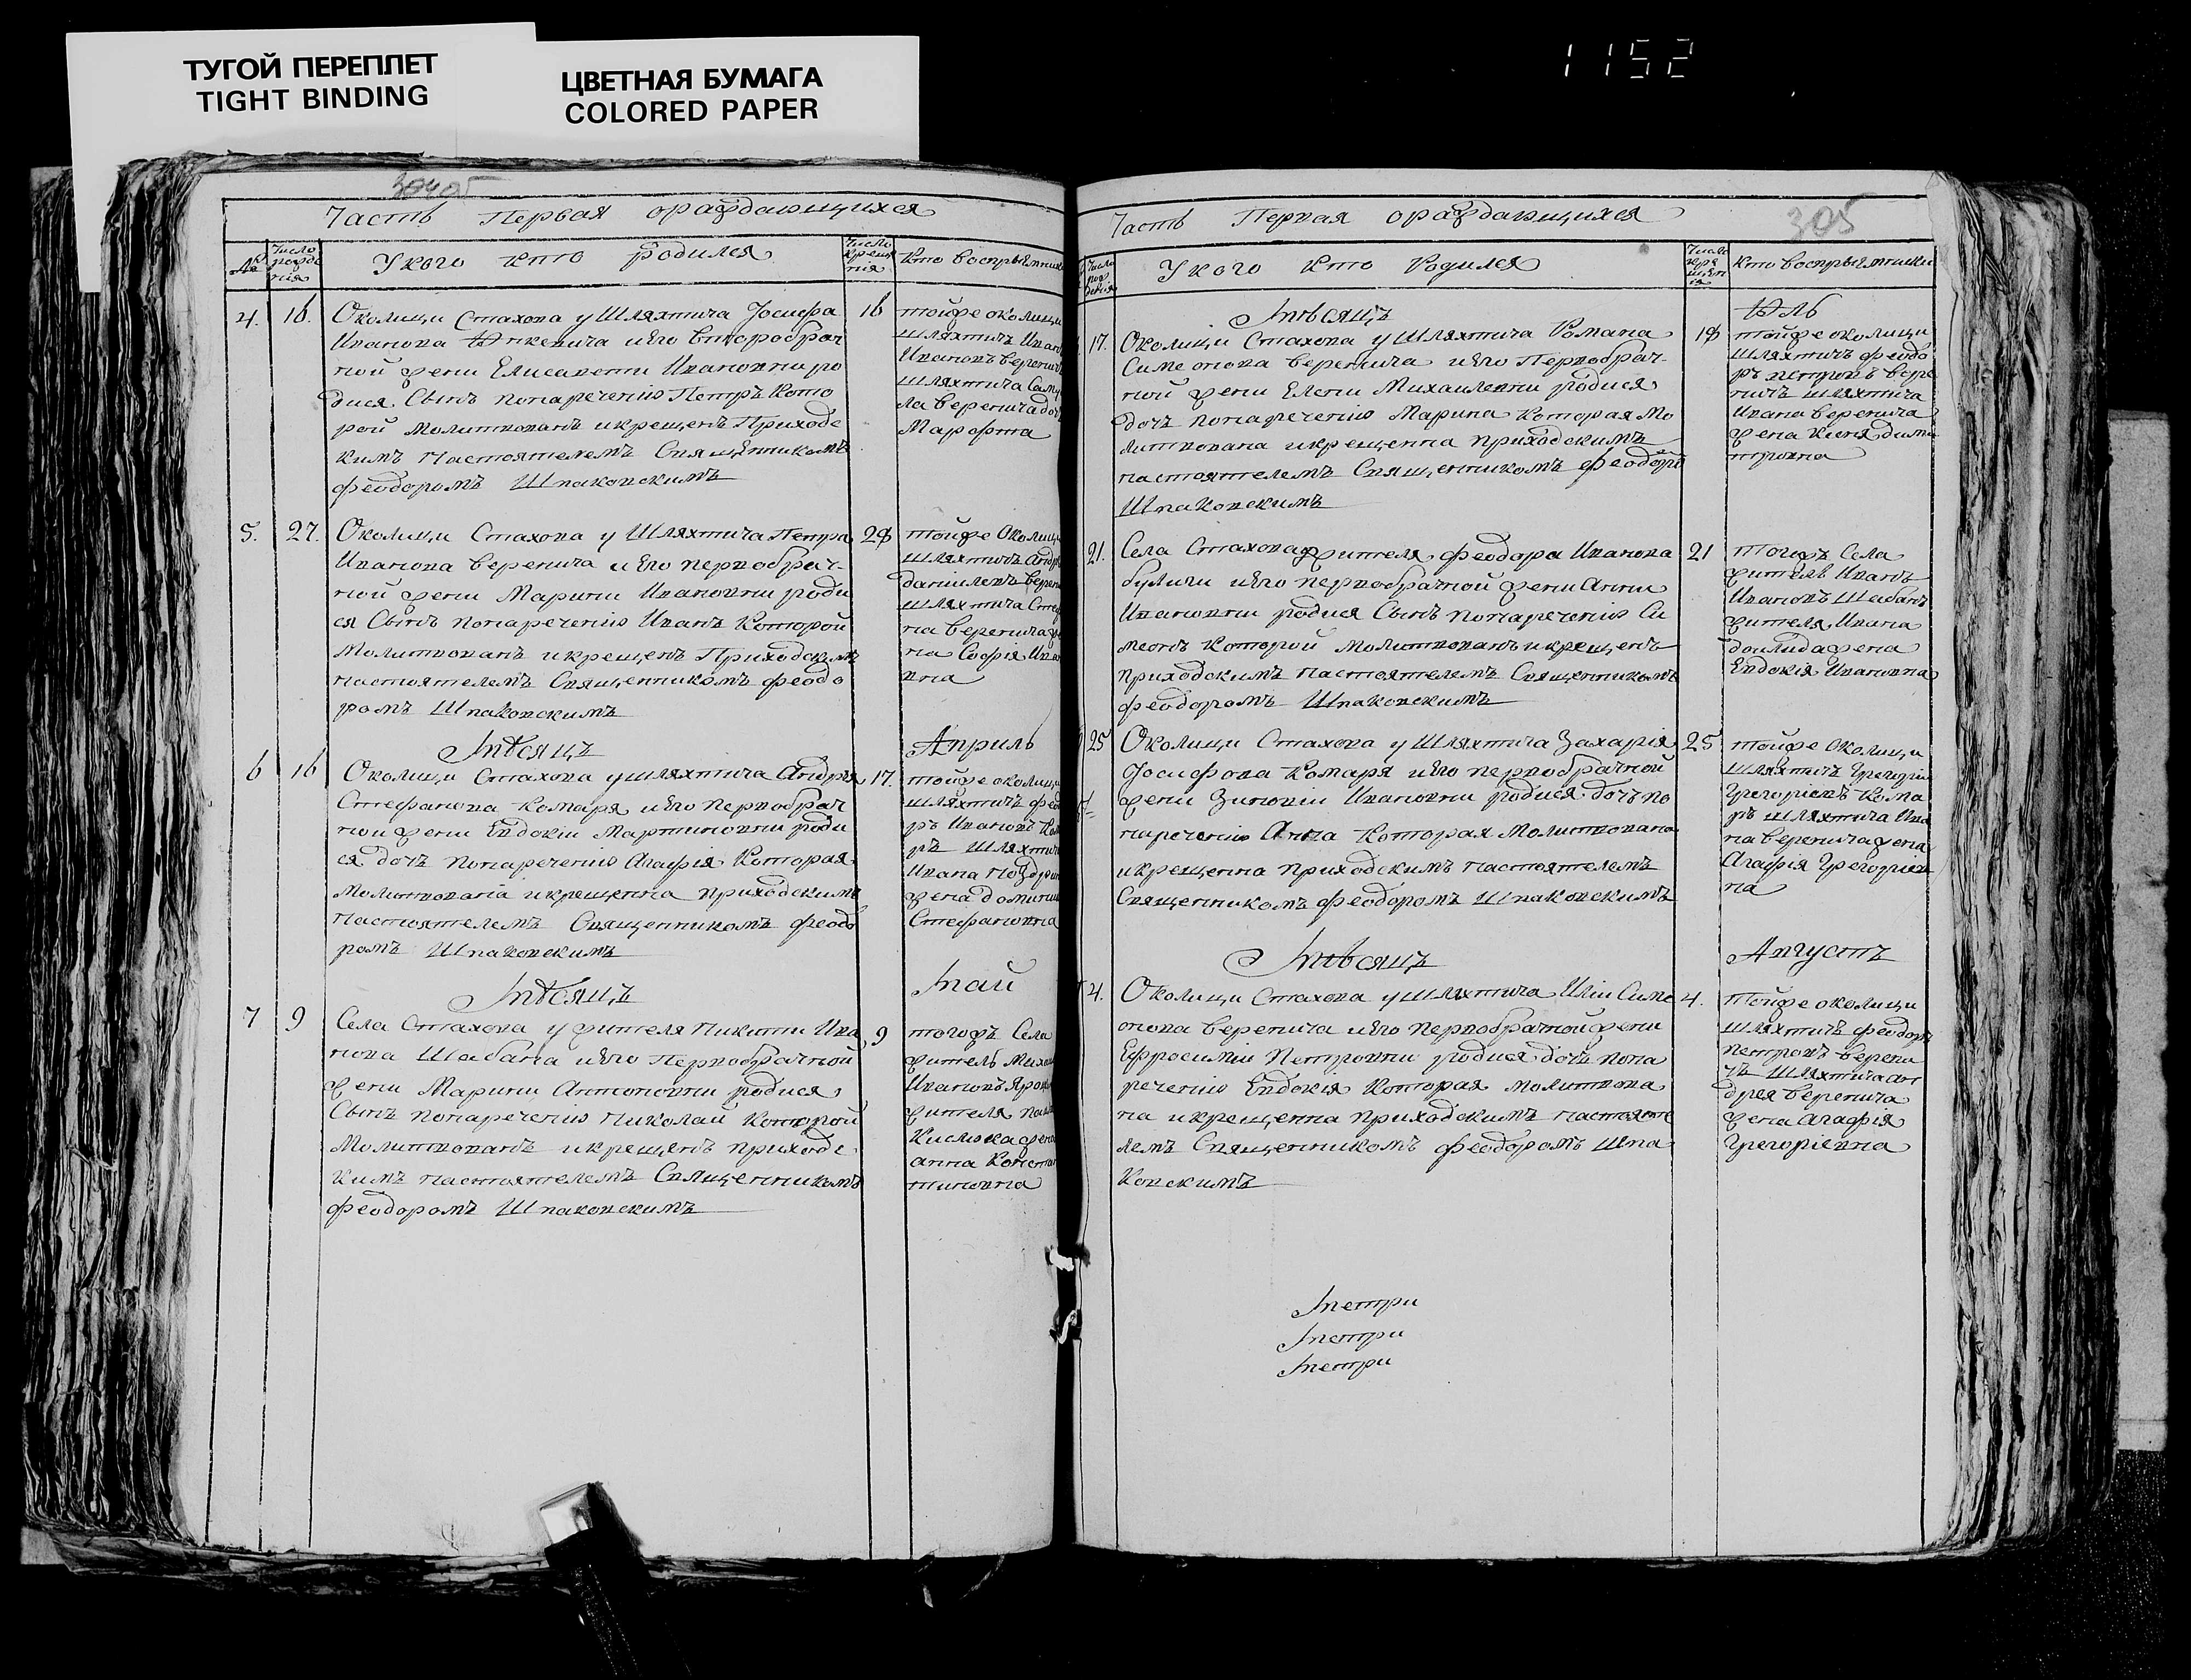 ТУГОЙ ПЕРЕПЛЕТ
TIGHT BINDING
ЦВЕТНАЯ БУМАГА
COLORED PAPER
1152
Часть Первая ораждающихся
№
Число рожде нія
У кого кто родился
Число креще нія
Кто воспрыемники
4. 16. Околицы Стахова у Шляхтича Іосифа 16
Иванова Юнкевича и его второбрач
ной жены Елисаветы Ивановны ро
дися Сынъ понареченію Петръ Кото
рой Молитвованъ икрещенъ Приходс
кимъ Настоятелемъ Священникомъ
Феодоромъ Шпаковскимъ
тойже околицы
Шляхтичъ Иван
Ивановъ веренич
Шляхтича Саму
ла Веренича доч
Марофта
5. 27. Околицы Стахова у Шляхтича Петра 28
Иванова веренича и его первобрач-
ной жены Марины Ивановны роди
ся Сынъ понареченію Иванъ Которой
Молитвованъ икрещенъ Приходскимъ
настоятелемъ Священникомъ Феодо
ромъ Шпаковскимъ
тойже Околицы
шляхтичъ Андр
Даніилевъ верен
шляхтича Сте
на веренича же
на Софія Иван
вна
Мѣсяцъ
Априль
6 16 Околицы Стахова у шляхтича Андрея 17.
Стефанова Комаря и его первобрач
ной жены Евдокіи Мартиновны роди
ся дочь понареченію Агафія Которая
молитвована икрещенна приходскимъ
настоятелемъ Священникомъ Феодо
ромъ Шпаковскимъ
тойже околицы
шляхтичъ Фео
ръ Ивановъ Ко
ръ Шляхтич
Ивана
жена
Стефановна
Мѣсяцъ
Май
7 9 Села Стахова у жителя Никиты Ива 9
нова Шабана и его Первобрачной
жены Марины Антоновны родися
Сынъ понареченію Николай Которой
Молитвованъ икрещенъ приходс
кимъ настоятелемъ Священникомъ
Феодоромъ Шпаковскимъ
тогожъ Села
житель Миха
Ивановъ
жителя
Кислюка жена
Анна Констан
тиновна
Часть Первая ораждающихся
305
Число рож денія
У кого Кто Родился
Число кре щен ія
Кто воспрыемники
Мѣсяцъ
Юль
17. Околицы Стахова у Шляхтича Романа 18
Симеонова веренича и его Первобрач-
ной жены Елены Михаиловны родися
дочь понареченію Марина Которая Мо
литвована икрещенна приходскимъ
настоятелемъ Священникомъ Феодоро
Шпаковскимъ
тойже околицы
шляхтичъ Феодо
ръ петровъ вере
ничъ шляхтича
Ивана веренича
жена Ксенія дими
тровна
21. Села Стахова жителя Феодора Иванова 21
булычи и его первобрачной жены Анны
Ивановны родися Сынъ понареченію Си
меонъ Которой молитвованъ икрещенъ
приходскимъ настоятелемъ Священникомъ
Феодоромъ Шпаковскимъ
тогожъ Села
житель Иванъ
Ивановъ Шабанъ
жителя Ивана
доилида жена
Евдокія Ивановна
25 Околицы Стахова у Шляхтича Захарія 25
Іосифова Комаря и его первобрачной
жены Зиновіи Ивановны родися дочь по
нареченію Анна Которая Молитвована
икрещенна приходскимъ настоятелемъ
Священникомъ Феодоромъ Шпаковскимъ
тойже Околицы
шляхтичъ Григорій
Григоріевъ Кома
ръ шляхтича Ива
на веренича жена
Агафія Григоріев
на
Мѣсяцъ
Августъ
4. Околицы Стахова у шляхтича Иліи Симе 4.
онова веренича и его первобрачной жены
Ефросиніи Петровны родися дочь пона
реченію Евдокія Которая молитвова
на икрещенна приходскимъ настояте
лемъ Священникомъ Феодоромъ Шпа
ковскимъ
тойже околицы
шляхтичъ Феодоръ
петровъ верени
чъ шляхтича Ан
дрея веренича
жена Агафія
Григоріевна